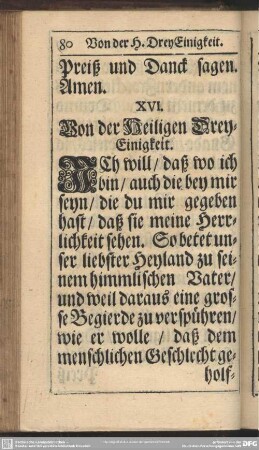 80 Von der H. DreyEinigkeit.
Preiß und Danck sagen.
Amen.
XVI.
Von der Heiligen Drey-
Einigkeit.
ICh will / daß wo ich
bin / auch die bey mir
seyn / die du mir gegeben
hast / daß sie meine Herr-
lichkeit sehen. So betet un-
ser liebster Heyland zu sei-
nem himmlischen Vater /
und weil daraus eine gros-
se Begierde zu verspühren /
wie er wolle / daß dem
menschlichen Geschlecht ge-
holf-